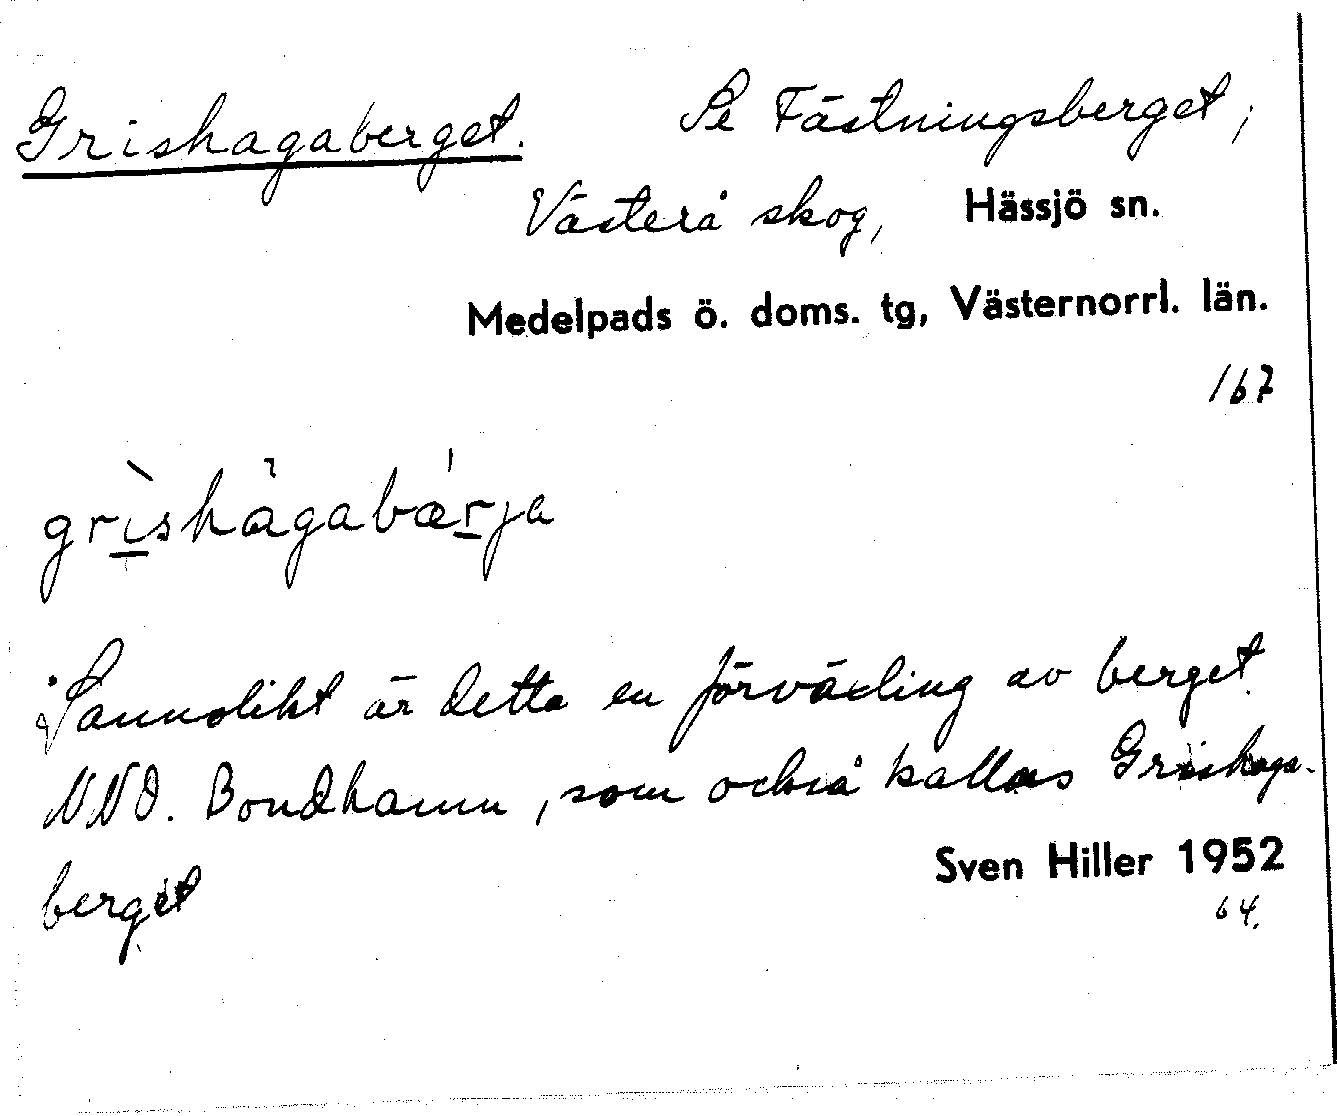 Grishagaberget. Se Fästningsberget;
Västerå skog, Hässjö sn.
Medelpads ö. doms. tg, Västernorrl. län.
167
grìshågabærja
Sannolikt är detta en förväxling av berget
NNO. Bondhamn, som också kallas Grishaga-
berget
Sven Hiller 1952
64.